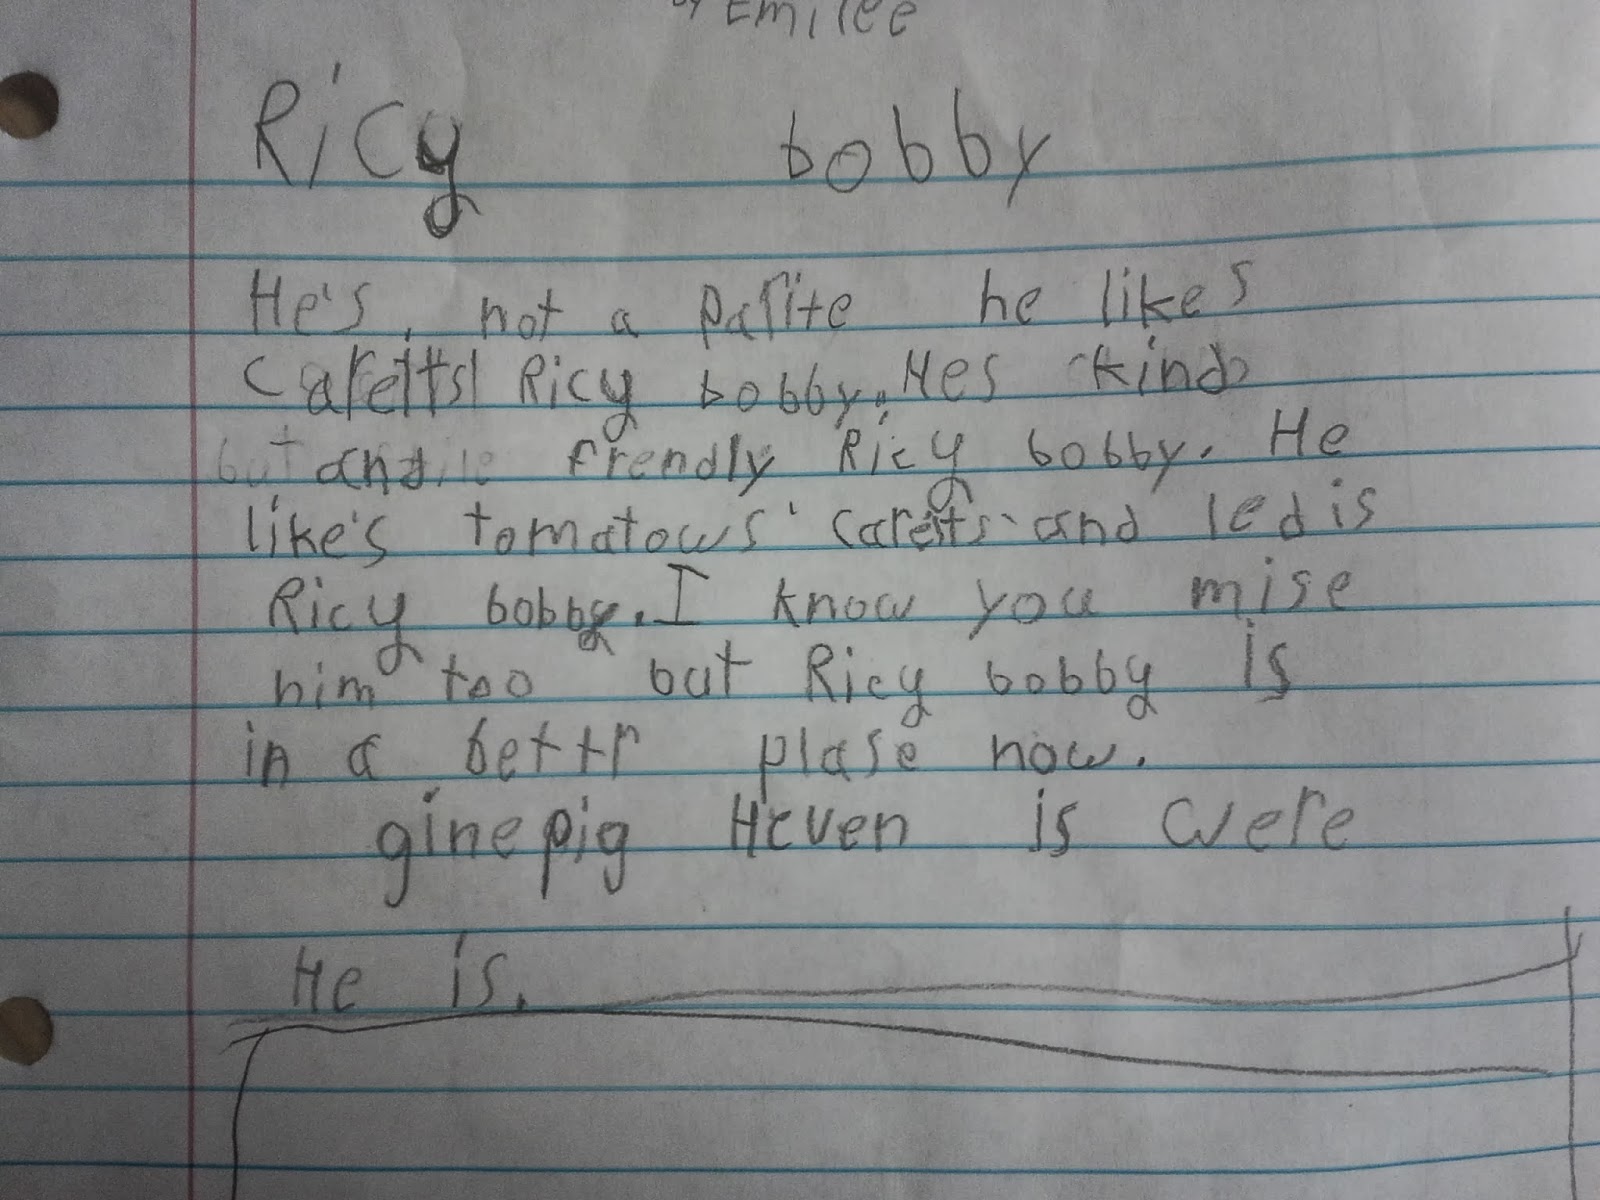 by Emilee
Ricy bobby
He's, not a Palite he likes
Careitts Ricy bobby. Hes kind
but and frendly Ricy bobby. He
like's tomatows' carets and ledis
Ricy bobby. I know you mise
him too but Ricy bobby is
in a bettr plase now.
ginepig Heven is were
He is.